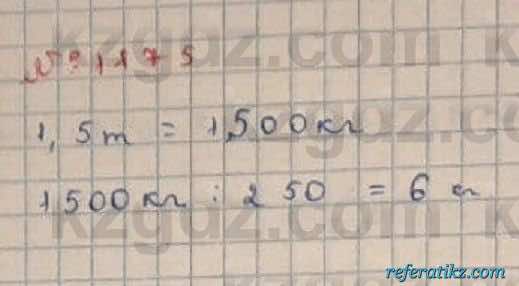 kzgdz.com
№ 1175
1,5т = 1,500кг
1500кг : 250 = 6 кг
kzgdz.com
referatikz.com